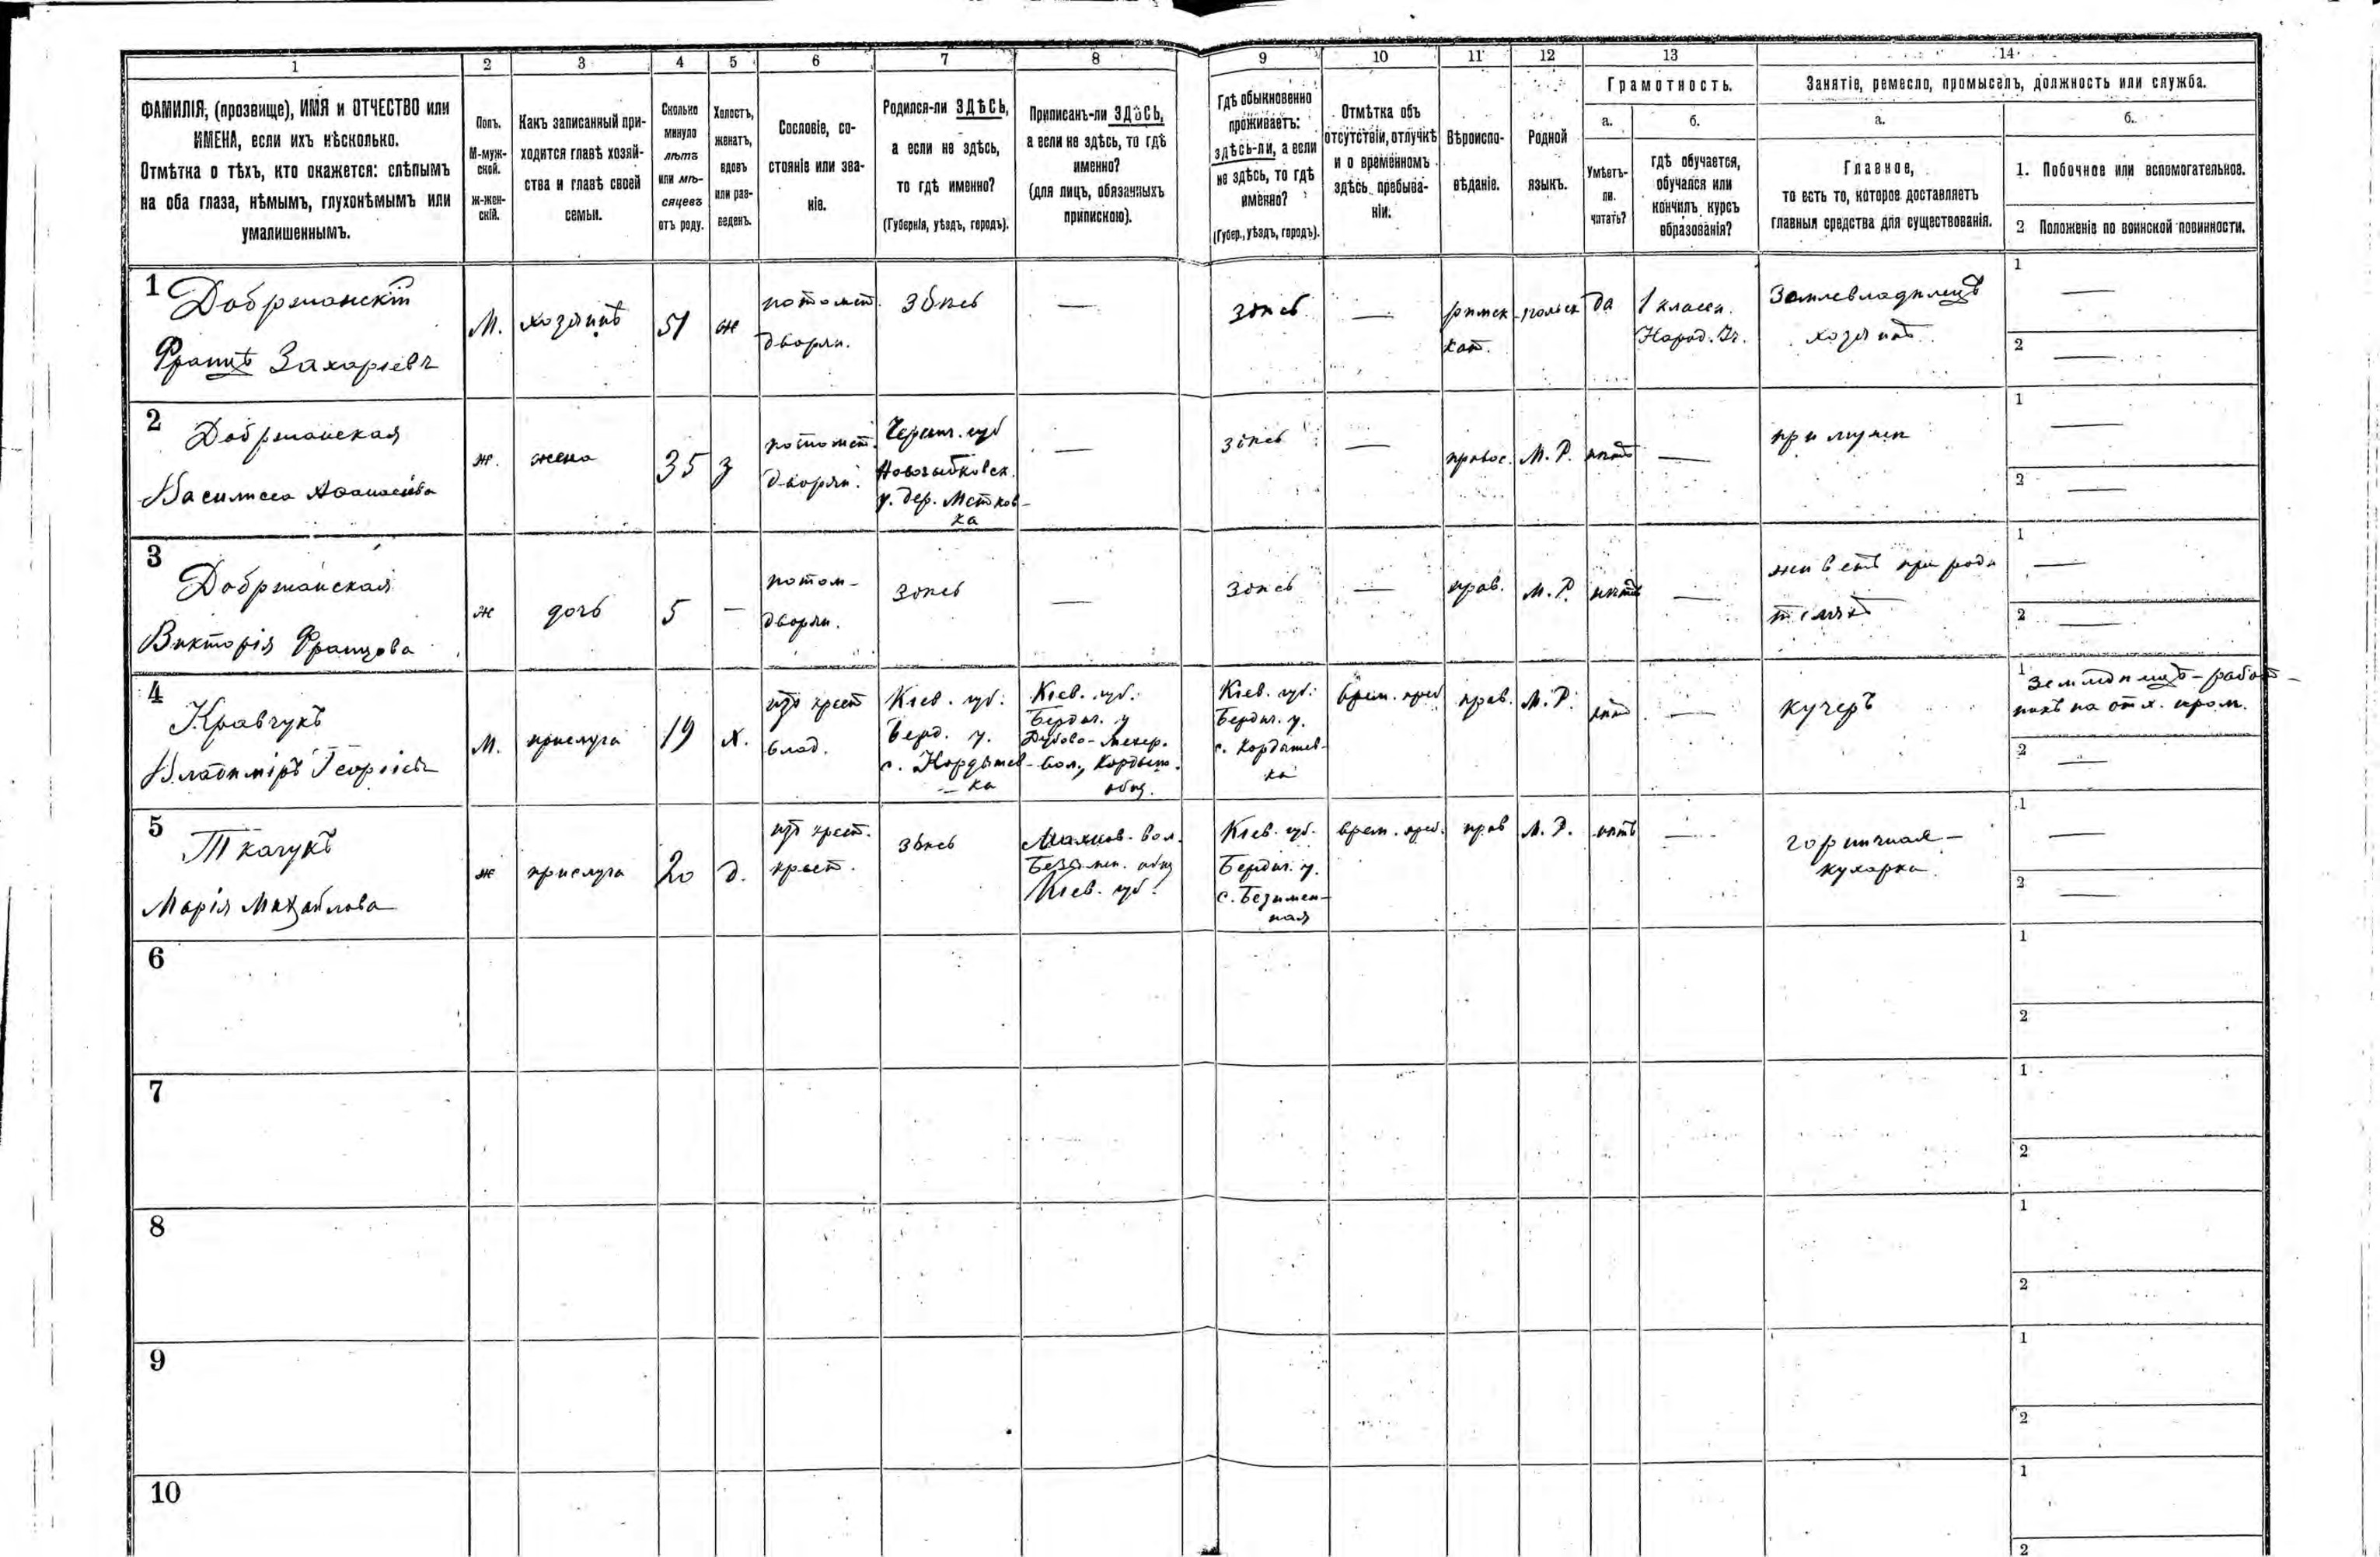 1 2 3 4 5 6 7 8 9 10 11 12 13 14
ФАМИЛІЯ, (прозвище), ИМЯ и ОТЧЕСТВО или
ИМЕНА, если ихъ нѣсколько.
Отмѣтка о тѣхъ, кто окажется: слѣпымъ
на оба глаза, нѣмымъ, глухонѣмымъ или
умалишеннымъ.
Полъ.
М-муж-
ской.
Ж-жен-
скій.
Какъ записанный при-
ходится главѣ хозяй-
ства и главѣ своей
семьи.
Сколько
минуло
лѣтъ
или мѣ-
сяцевъ
отъ роду.
Холостъ,
женатъ,
вдовъ
или раз-
веденъ.
Сословіе, со-
стояніе или зва-
ніе.
Родился-ли ЗДѢСЬ,
а если не здѣсь,
то гдѣ именно?
(Губернія, уѣздъ, городъ).
Приписанъ-ли ЗДѢСЬ,
а если не здѣсь, то гдѣ
именно?
(для лицъ, обязанныхъ
припискою).
Гдѣ обыкновенно
проживаетъ:
здѣсь-ли, а если
не здѣсь, то гдѣ
именно?
(Губер., уѣздъ, городъ).
Отмѣтка объ
отсутствіи, отлучкѣ
и о временномъ
здѣсь пребыва-
ніи.
Вѣроиспо-
вѣданіе.
Родной
языкъ.
Грамотность.
а.
Умѣетъ-
ли
читать?
б.
гдѣ обучается,
обучался или
кончилъ курсъ
образованія?
Занятіе, ремесло, промыселъ, должность или служба.
а.
Главное,
то есть то, которое доставляетъ
главныя средства для существованія.
б.
1. Побочное или вспомогательное.
2 Положеніе по воинской повинности.
1
Добржанскій
Францъ Захаріевъ
М.
хозяинъ
51
ж
потомст.
дворян.
здѣсь
—
здѣсь
—
римск
кат.
польск
да
1 класси.
Народ.
Землевладѣлецъ
хозяинъ
1 —
2 —
2
Добржанская
Василиса Афанасіева
ж.
жена
35
з
потомст.
дворян.
Черниг. губ
Новозыбковск.
у. дер. Мстков-
ка
—
здѣсь
—
правос.
М. Р.
нѣтъ
—
при мужѣ
1 —
2 —
3
Добржанская
Викторія Францова
ж
дочь
5
—
потом-
дворян.
здѣсь
—
здѣсь
—
прав.
М. Р.
нѣтъ
—
живетъ при роди
теляхъ
1 —
2 —
4
Кравчукъ
Владиміръ Георгіевъ
М.
прислуга
19
х.
изъ крест
влад.
Кіев. губ.
Берд. у.
с. Кордышев
-ка
Кіев. губ.
Бердич. у
Дубово-Мехер.
вол., Кордыш.
общ.
Кіев. губ.
Бердич. у.
с. Кордышев-
ка
врем. преб
прав.
М. Р.
нѣтъ
—
кучеръ
1 Земледѣлецъ - работ-
никъ на отх. пром.
2 —
5
Ткачукъ
Марія Михайлова
ж
прислуга
20
д.
изъ крест.
крест.
здѣсь
Махнов. вол.
Безимен. общ
Кіев. губ.
Кіев. губ.
Бердич. у.
с. Безимен-
ная
врем. преб.
прав
М. Р.
нѣтъ
—
горничная-
кухарка
1 —
2 —
6
1
2
7
1
2
8
1
2
9
1
2
10
1
2